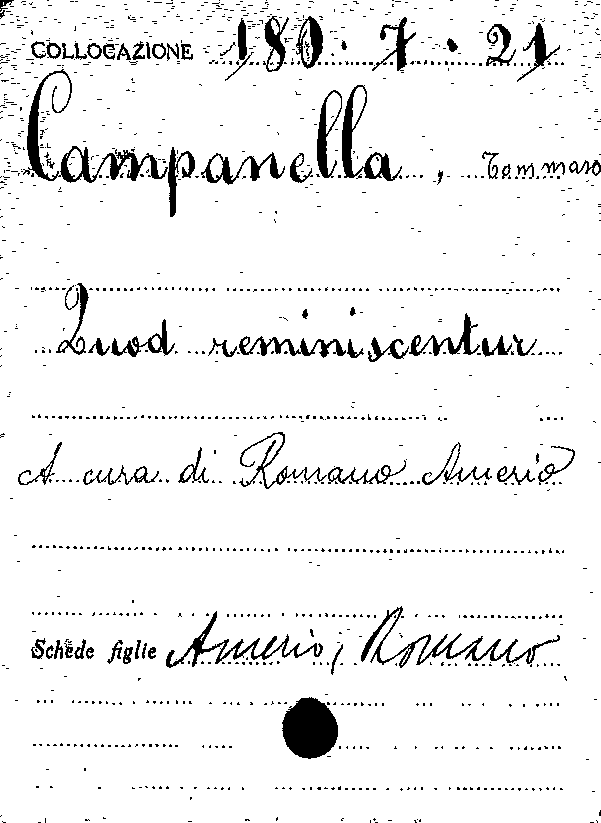 COLLOCAZIONE 180.7.21
Campanella, Tommaso
Quod reminiscentur
A cura di Romano Amerio
Schede figlie Amerio, Romano